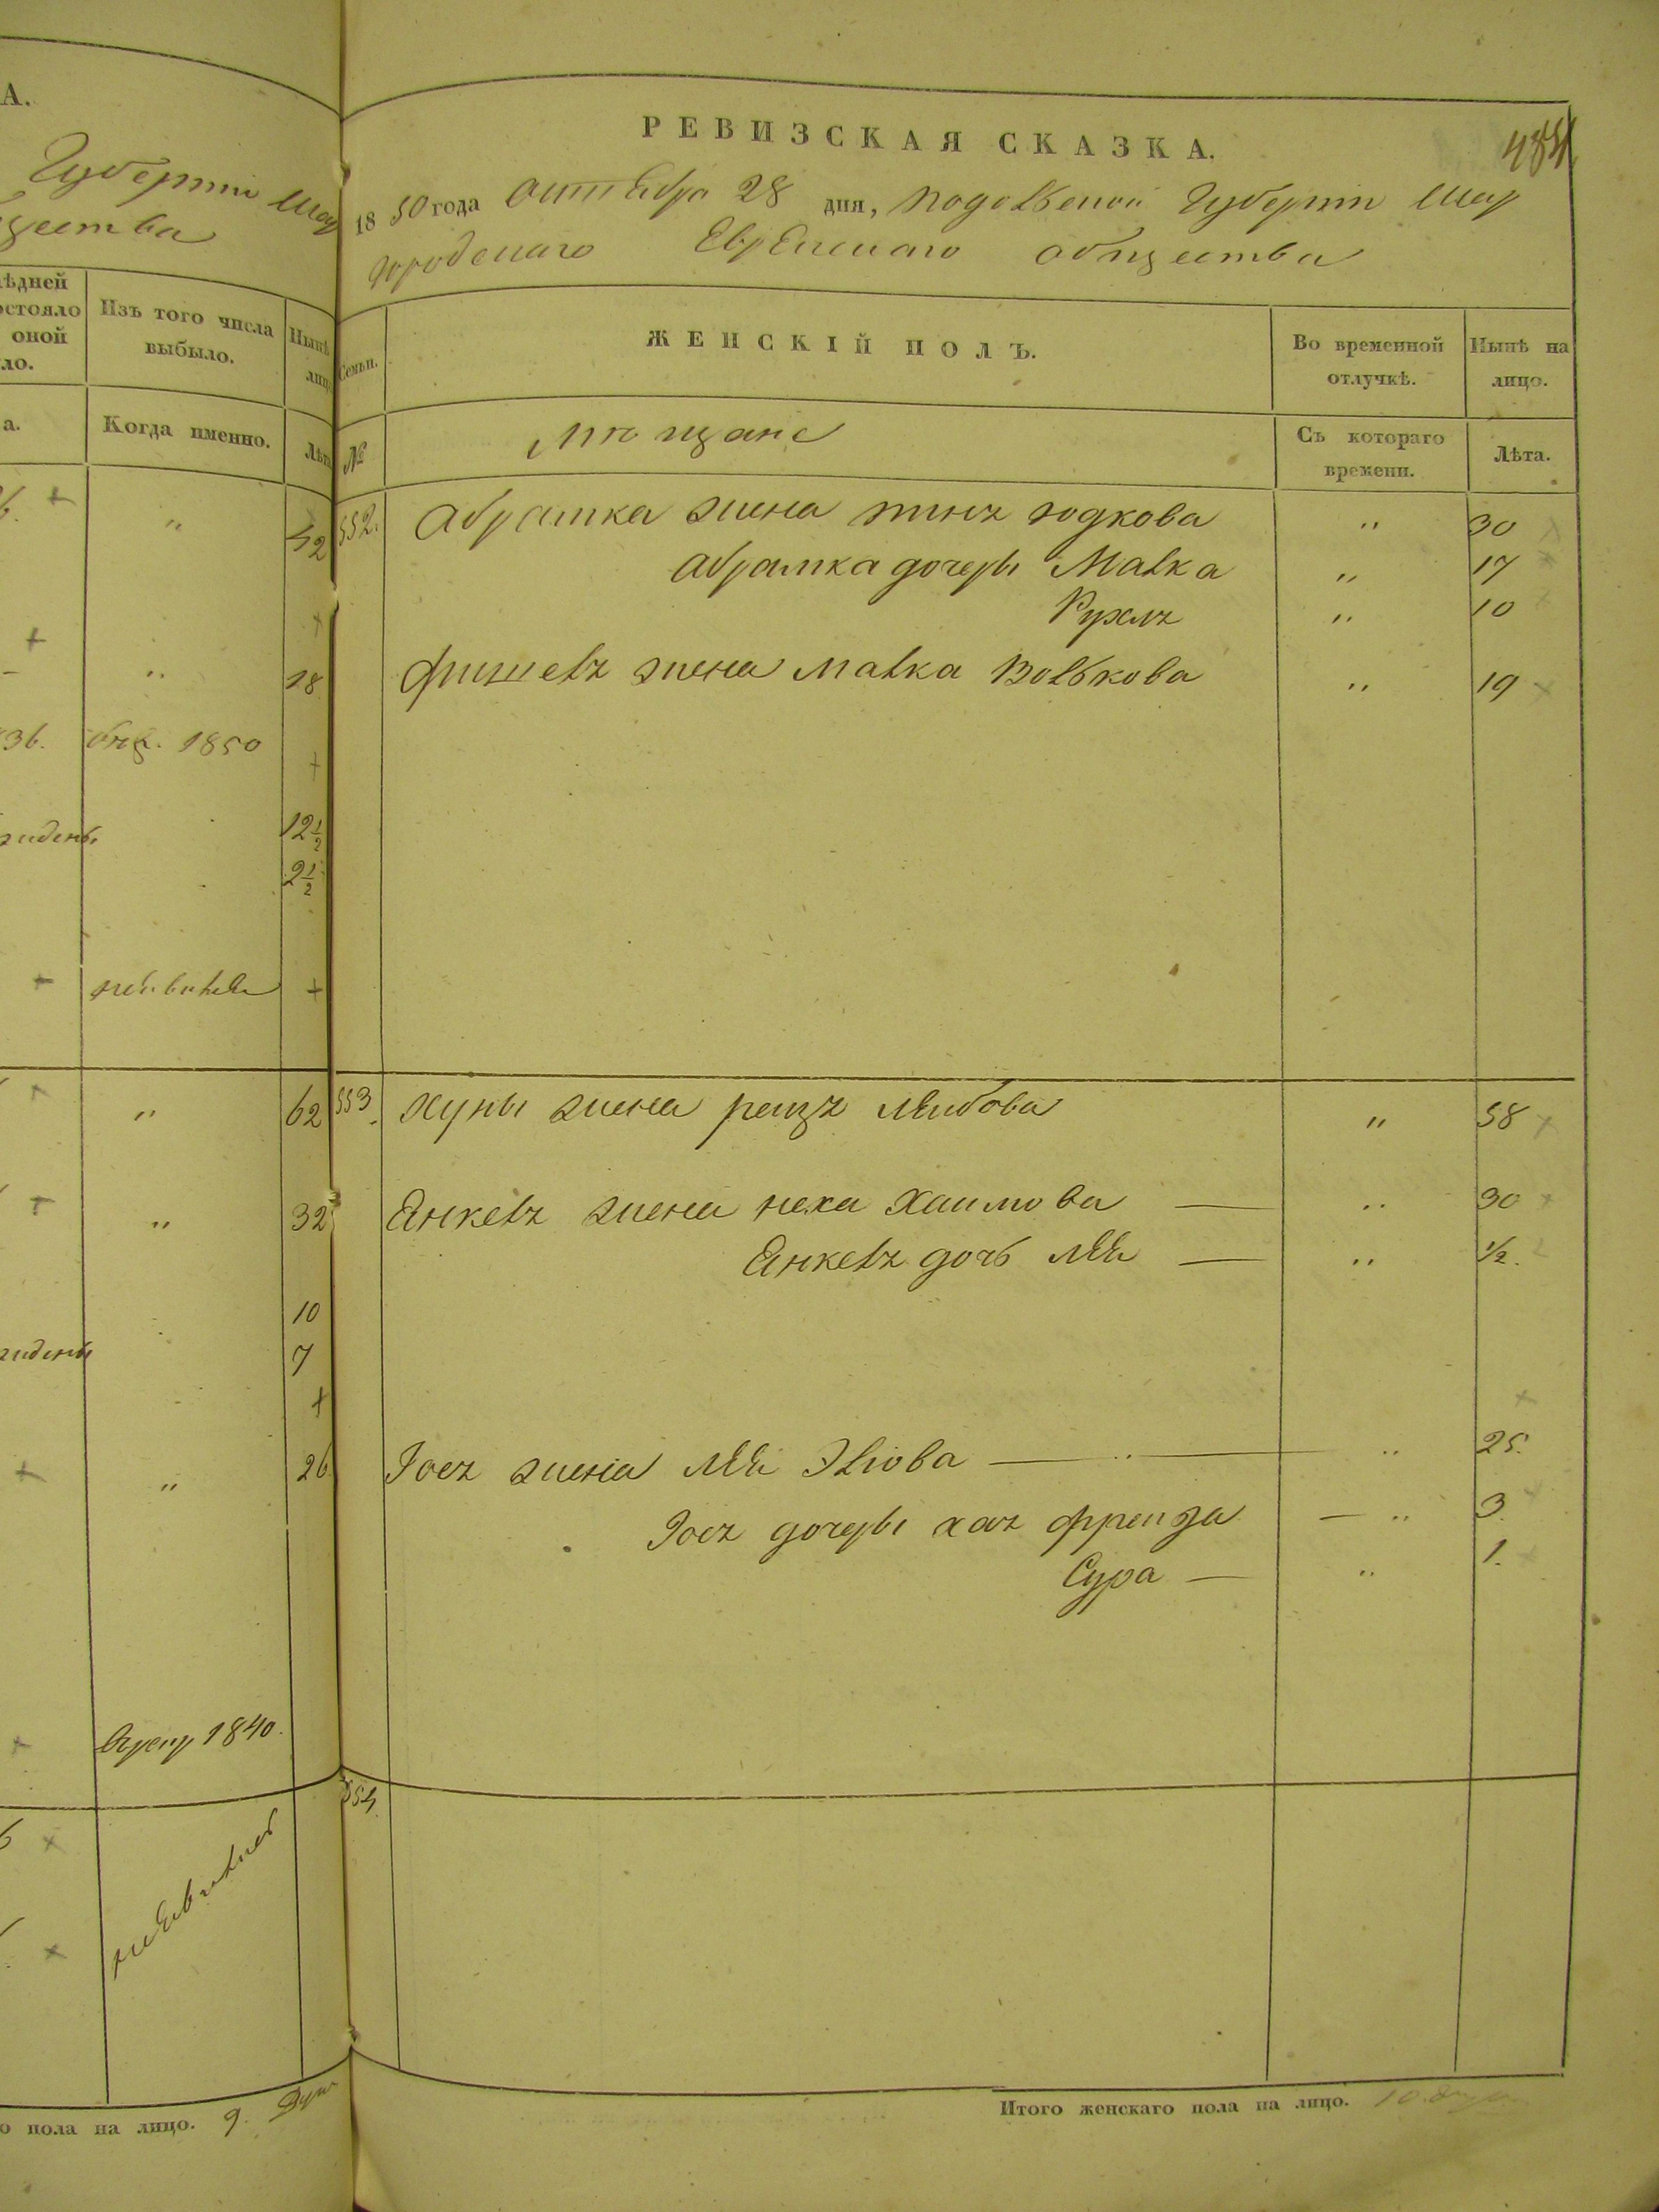 А.
Губернии Шар
щества
ѣдней
остояло
оной
ло.
Изъ того числа
выбыло.
Нынѣ
лицо
а.
Когда именно.
Лѣта
+
"
42
+
"
18
36.
1850
12 1/2
2 1/2
+
+
"
62
+
"
32
10
7
+
+
"
26
+
1840.
+
+
о пола на лицо. 9. Душ
РЕВИЗСКАЯ СКАЗКА.
484
1850 года октября 28 дня, Подольской Губернии Шар
городского Еврейскаго общества
Семьи.
ЖЕНСКІЙ ПОЛЪ.
Во временной
отлучкѣ.
Нынѣ на
лицо.
№
Мещане
Съ котораго
времени.
Лѣта.
552. Абрамка жена Юдкова " 30
Абрамка дочеры Малка " 17
Рухлъ " 10
Фишель жена Малка Волькова " 19
553. Хуны жена Рейзъ Лейбова " 58
Янкель жена Неха Хаимова — " 30
Янкель дочь Лея — " 1/2.
Іось жена Лея Эліова — " 25.
Іось дочеры Хая Фрейда — " 3.
Сура — " 1.
554.
Итого женскаго пола на лицо. 10. душ